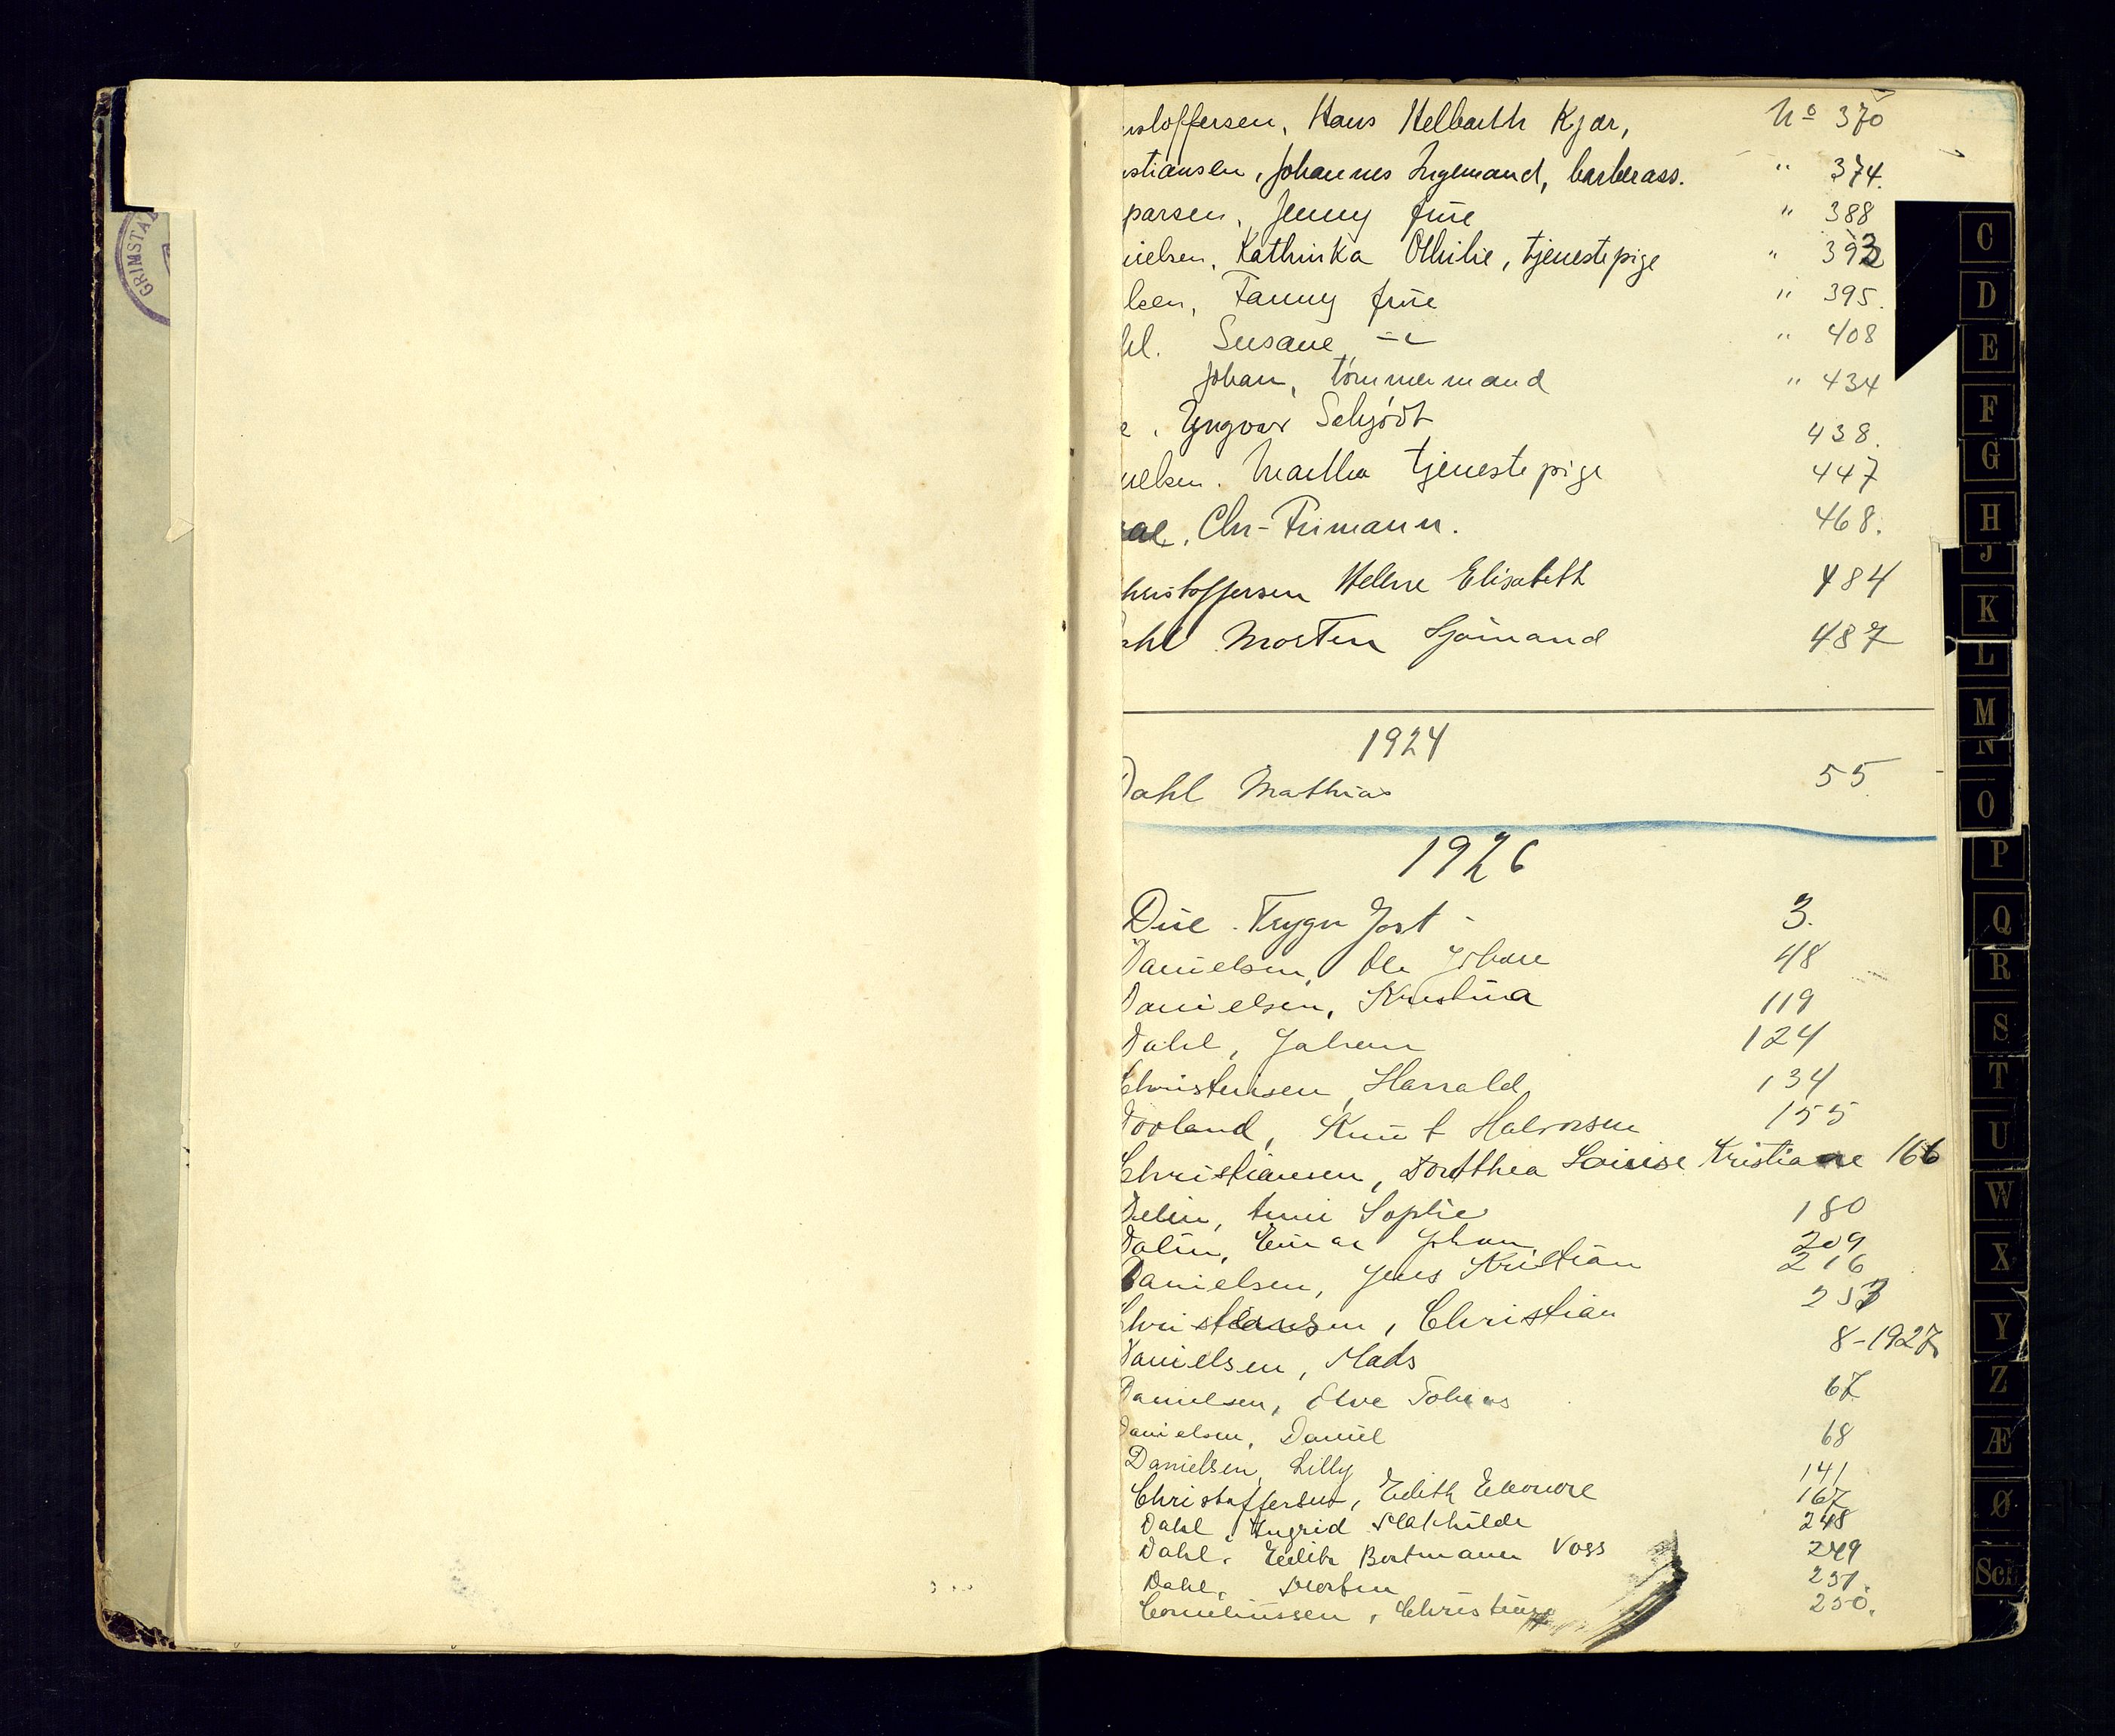 GRIMSTA
istoffersen, Hans Helbarth Kjær, No 370
istiansen, Johannes Ingemand, barberass. " 374.
parsen, Jenny frue " 388
nielsen, Kathinka Othilie, tjenestepige " 393
lsen, Fanny frue " 395.
hl. Susane " 408
Johan, tømmermand " 434
e. Yngvar Schjödt 438.
nielsen. Martha tjenestepige 447
Chr- Frimann. 468.
hristoffersen Helene Elisabeth 484
ahl Morten Sjömand 487
1924
Dahl Mathias 55.
1926
Due. Trygve Jost - 3.
Danielsen, Ole Johan 48
Danielsen, Kristina 119
Dahl, Johan 124
Christensen, Harrald 134
Dovland, Knut Halvorsen 155
Christiansen, Dorthea Louise Kristiane 166
Sophie 180
Dalin, Einar Johan 209
Danielsen, Jens Kristian 216
Christiansen, Christian 253
Danielsen, Mads 8-1927
Danielsen, Elve Tobias 67.
Danielsen, Daniel 68
Danielsen, Lilly 141
Christoffersen, Edith Eleonore 167
Dahl, Ingrid Mathilde 248
Dahl, Edith Bertmann Voss 249
Dahl, Morten 251.
Corneliussen, Christine 250.
C
D
E
F
G
H
J
K
L
M
N
O
P
Q
R
S
T
U
W
X
Y
Z
Æ
Ø
Sch